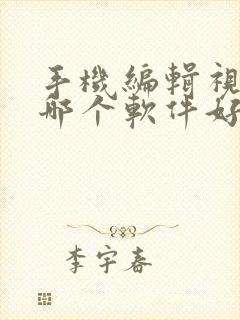 手機編輯視
那个軟件好
李宇春